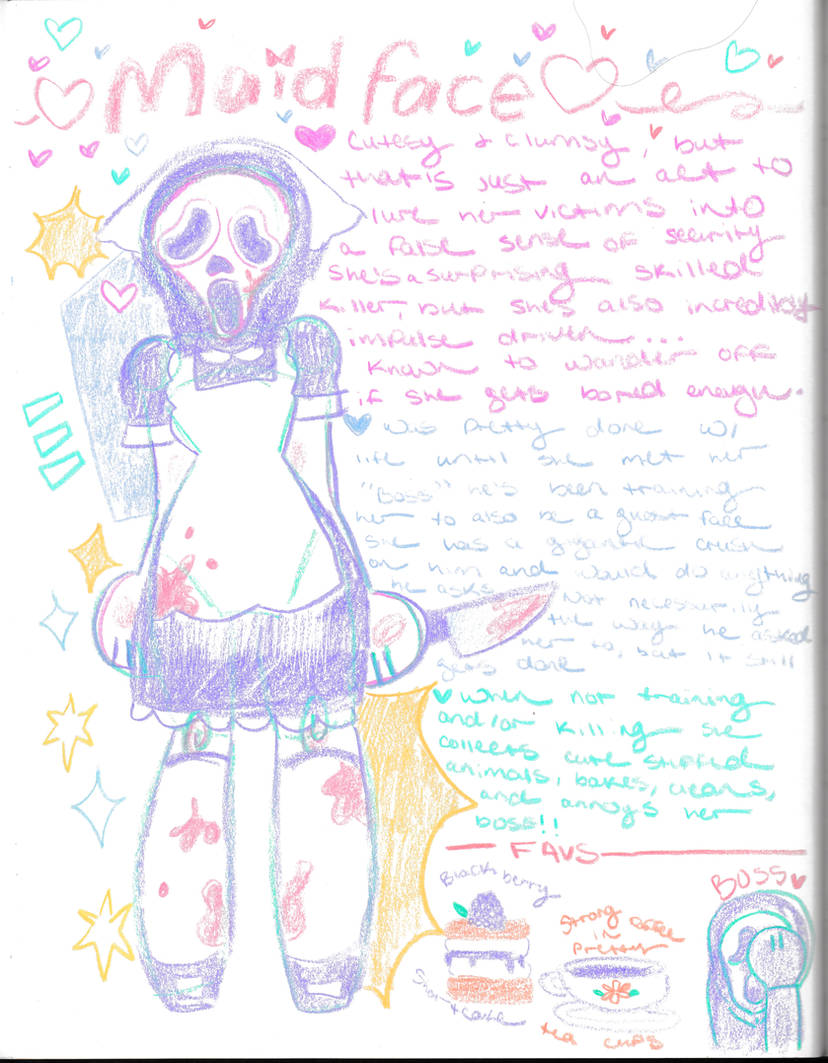 Maid face
Cutesy & clumsy, but
that is just an act to
lure her victims into
a false sense of security
she's a surprising skilled
killer, but she's also incredibly
impulse driven...
known to wander off
if she gets bored enough.
was pretty done w/
life until she met her
"Boss" he's been training
her to also be a ghost face
she has a gigantic crush
on him and would do anything
he asks. Not necessarily
the way he asked
her to, but it still
gets done
when not training
and/or killing she
collects cute stuffed
animals, bakes, cleans,
and annoys her
boss!!
FAVS
Blackberry
Short cake
Strong coffee
in
pretty
tea cups
BOSS